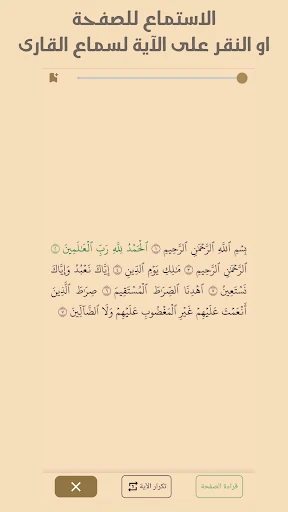 الاستماع للصفحة
او النقر على الآية لسماع القارئ
بِسْمِ ٱللَّهِ ٱلرَّحْمَٰنِ ٱلرَّحِيمِ ۝١ ٱلْحَمْدُ لِلَّهِ رَبِّ ٱلْعَٰلَمِينَ ۝٢
ٱلرَّحْمَٰنِ ٱلرَّحِيمِ ۝٣ مَٰلِكِ يَوْمِ ٱلدِّينِ ۝٤ إِيَّاكَ نَعْبُدُ وَإِيَّاكَ
نَسْتَعِينُ ۝٥ ٱهْدِنَا ٱلصِّرَٰطَ ٱلْمُسْتَقِيمَ ۝٦ صِرَٰطَ ٱلَّذِينَ
أَنْعَمْتَ عَلَيْهِمْ غَيْرِ ٱلْمَغْضُوبِ عَلَيْهِمْ وَلَا ٱلضَّآلِّينَ ۝٧
قراءة الصفحة
تكرار الآية